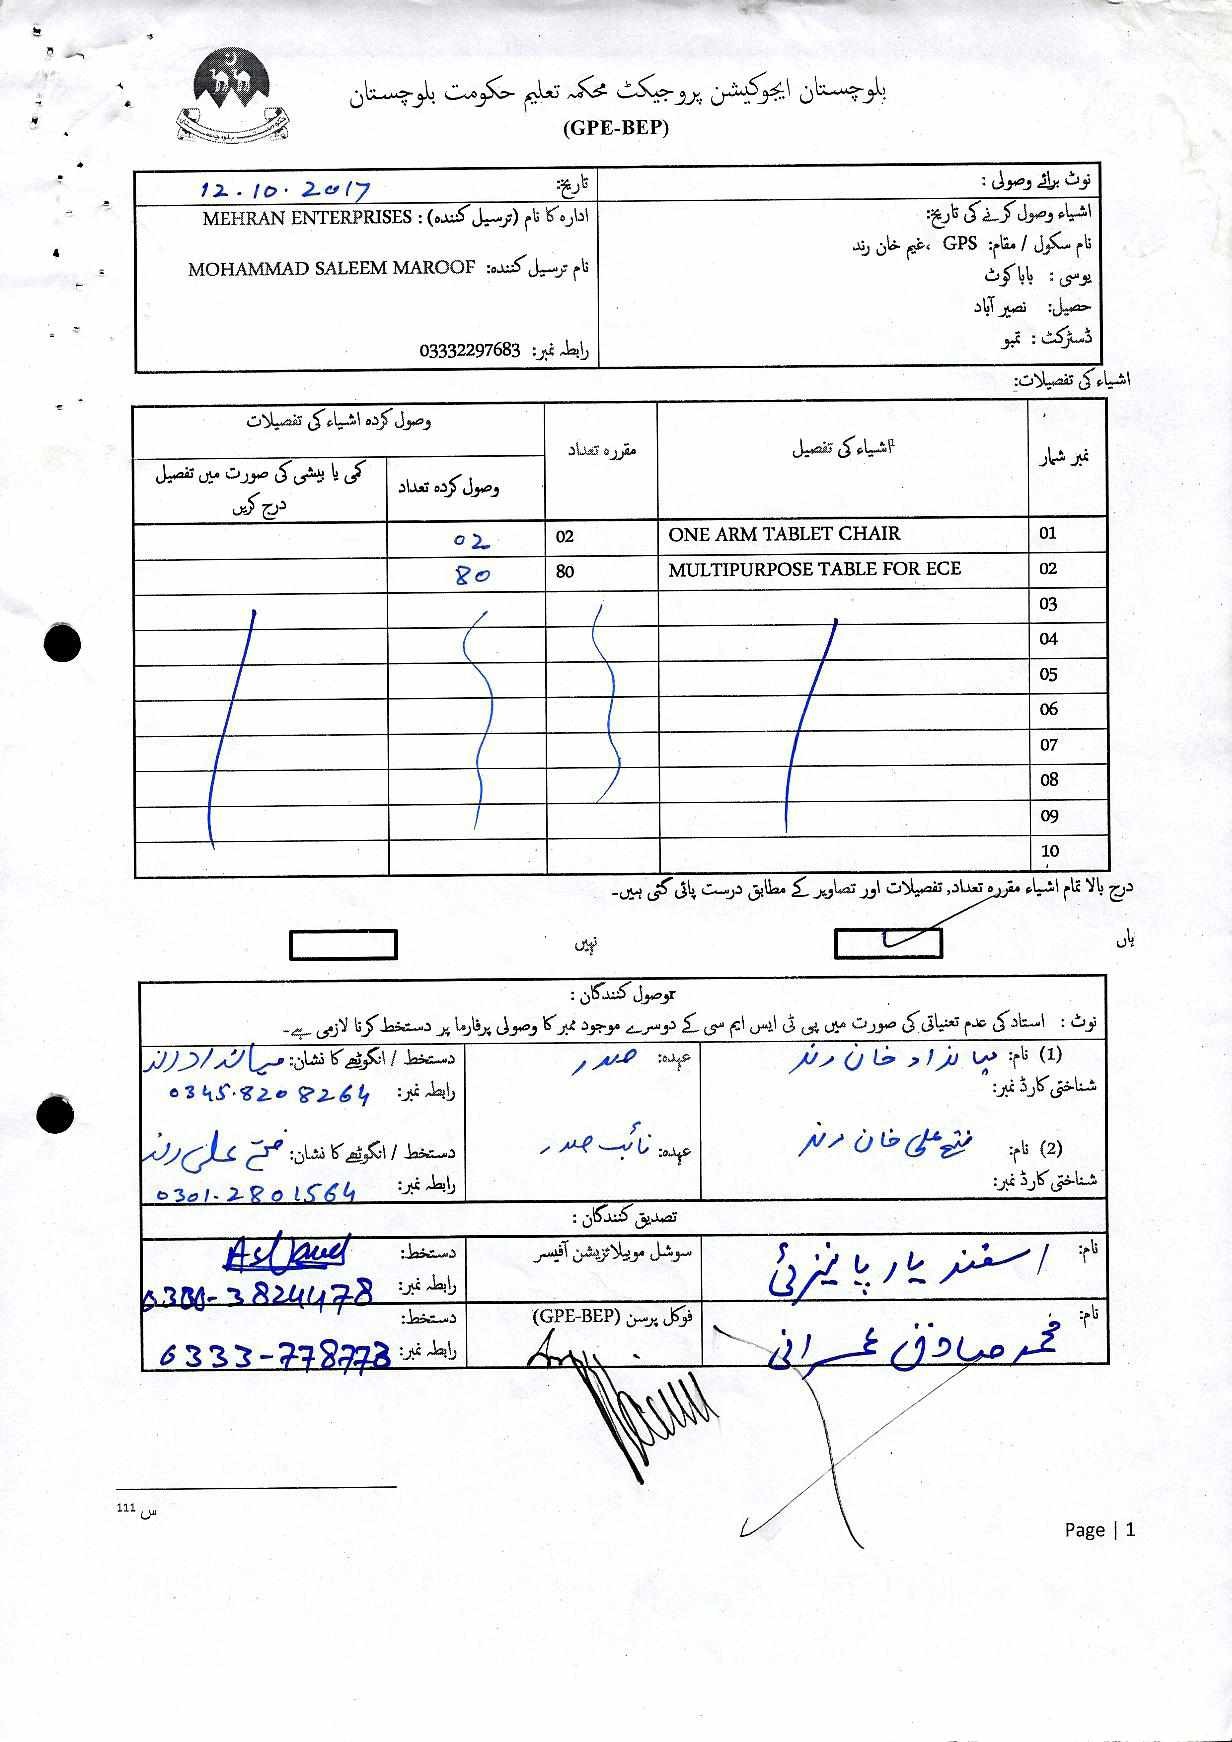 بلوچستان ایجوکیشن پروجیکٹ محکمہ تعلیم حکومت بلوچستان
(GPE-BEP)
نوٹ برائے وصولی :
تاریخ: 12.10.2017
اشیاء وصول کرنے کی تاریخ:
نام سکول / مقام: GPS ،غیم خان رند
یوسی : بابا کوٹ
حصیل: نصیر آباد
ڈسٹرکٹ : تمبو
ادارہ کا نام (ترسیل کنندہ) : MEHRAN ENTERPRISES
نام ترسیل کنندہ: MOHAMMAD SALEEM MAROOF
رابطہ نمبر: 03332297683
اشیاء کی تفصیلات:
نمبر شمار اشیاء کی تفصیل مقررہ تعداد وصول کردہ اشیاء کی تفصیلات
وصول کردہ تعداد کمی یا بیشی کی صورت میں تفصیل درج کریں
01 ONE ARM TABLET CHAIR 02 02
02 MULTIPURPOSE TABLE FOR ECE 80 80
03
04
05
06
07
08
09
10
درج بالا تمام اشیاء مقررہ تعداد, تفصیلات اور تصاویر کے مطابق درست پائی گئی ہیں۔
ہاں نہیں
وصول کنندگان :
نوٹ : استاد کی عدم تعنیاتی کی صورت میں پی ٹی ایس ایم سی کے دوسرے موجود ممبر کا وصولی پرفارما پر دستخط کرنا لازمی ہے۔
(1) نام: خان رند عہدہ: صدر دستخط / انگوٹھے کا نشان:
شناختی کارڈ نمبر: رابطہ نمبر: 0345.8208264
(2) نام: فتح علی خان رند عہدہ: نائب صدر دستخط / انگوٹھے کا نشان: فتح علی رند
شناختی کارڈ نمبر: رابطہ نمبر: 0301.2801564
تصدیق کنندگان :
نام: اسفند یار پانیزئی سوشل موبیلائزیشن آفیسر دستخط:
رابطہ نمبر: 0300-3824478
نام: محمد صادق عمرانی فوکل پرسن (GPE-BEP) دستخط:
رابطہ نمبر: 0333-778773
س 111
Page | 1